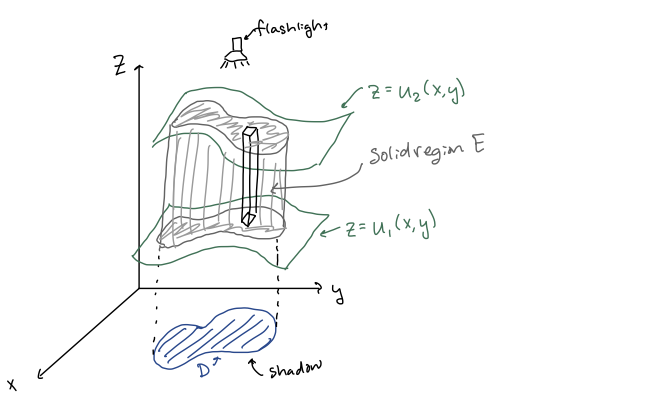 flashlight
z
z = u₂(x,y)
solid region E
z = u₁(x,y)
y
D
shadow
x